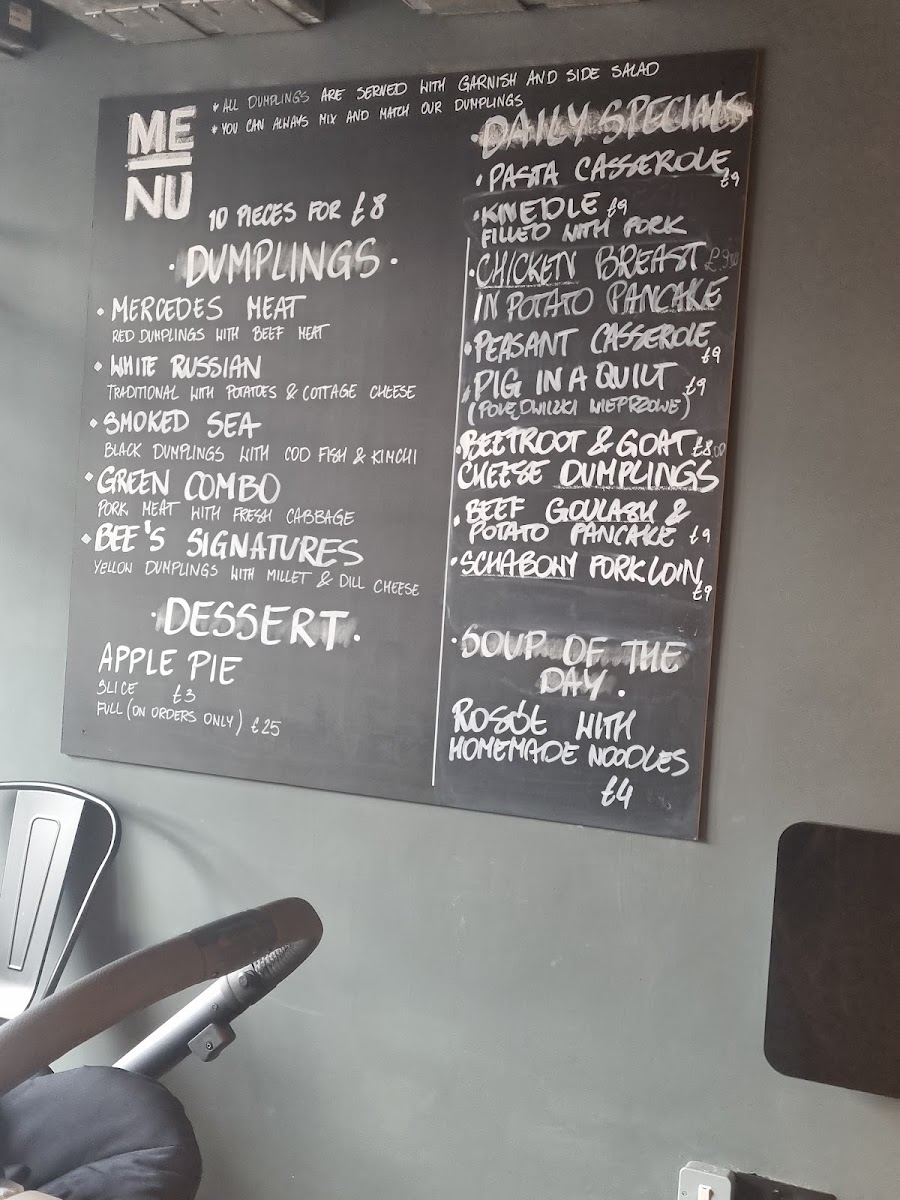 ME
NU
* ALL DUMPLINGS ARE SERVED WITH GARNISH AND SIDE SALAD
* YOU CAN ALWAYS MIX AND MATCH OUR DUMPLINGS
10 PIECES FOR £8
· DUMPLINGS ·
MERCEDES MEAT
RED DUMPLINGS WITH BEEF MEAT
WHITE RUSSIAN
TRADITIONAL WITH POTATOES & COTTAGE CHEESE
SMOKED SEA
BLACK DUMPLINGS WITH COD FISH & KIMCHI
GREEN COMBO
PORK MEAT WITH FRESH CABBAGE
BEE'S SIGNATURES
YELLOW DUMPLINGS WITH MILLET & DILL CHEESE
· DESSERT ·
APPLE PIE
SLICE £3
FULL (ON ORDERS ONLY) £25
· DAILY SPECIALS
· PASTA CASSEROLE £9
· KNEDLE £9
FILLED WITH PORK
· CHICKEN BREAST
IN POTATO PANCAKE
· PEASANT CASSEROLE £9
· PIG IN A QUILT £9
(POLĘDWICZKI WIEPRZOWE)
· BEETROOT & GOAT £8.00
CHEESE DUMPLINGS
· BEEF GOULASH &
POTATO PANCAKE £9
· SCHABOWY PORK LOIN £9
· SOUP OF THE
DAY ·
ROSÓŁ WITH
HOMEMADE NOODLES
£4